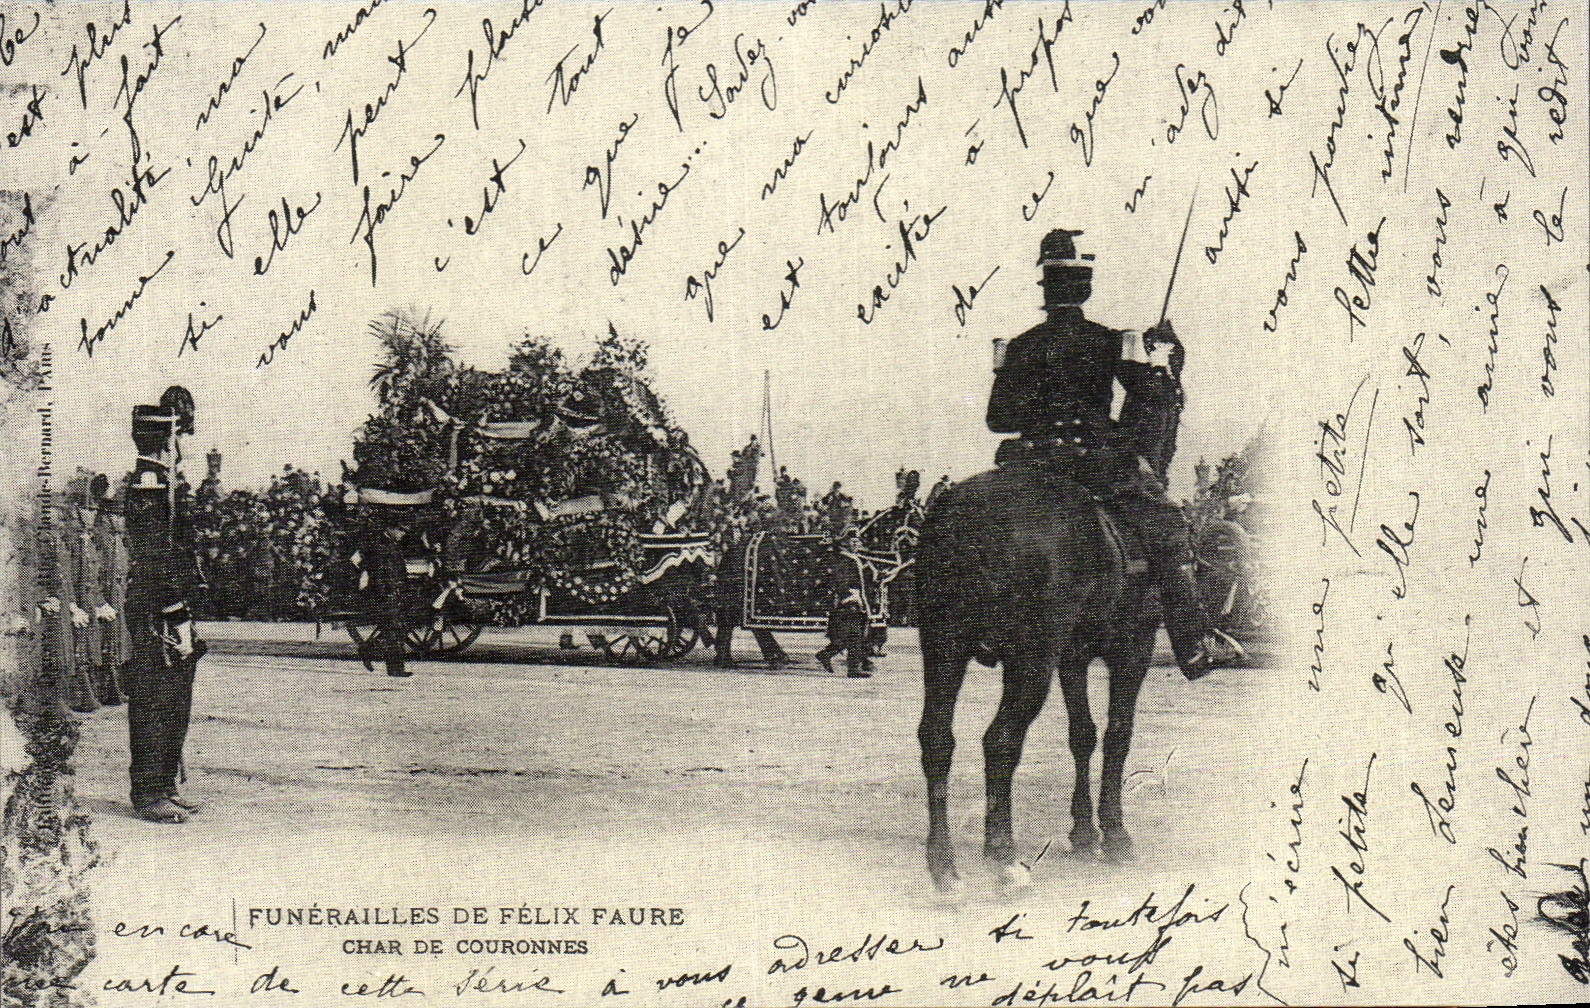 Ce
est plus
tout à fait
d'actualité, ma
bonne Guité, mai
si elle peut
vous faire plaisi
c'est tout
ce que je
désire... Savez-vou
que ma curiosit
est toujours auss
excitée à propos
de ce que vou
m'avez dit,
aussi si
vous pouviez
m'écrire une petite lettre intime,
si petite qu'elle soit, vous rendriez
bien heureuse une amie à qui vous
êtes bien chère et qui vous le redit
encore
carte de cette série à vous adresser si toutefois
ce genre ne vous
déplaît pas
FUNÉRAILLES DE FÉLIX FAURE
CHAR DE COURONNES
Claude-Bernard, PARIS